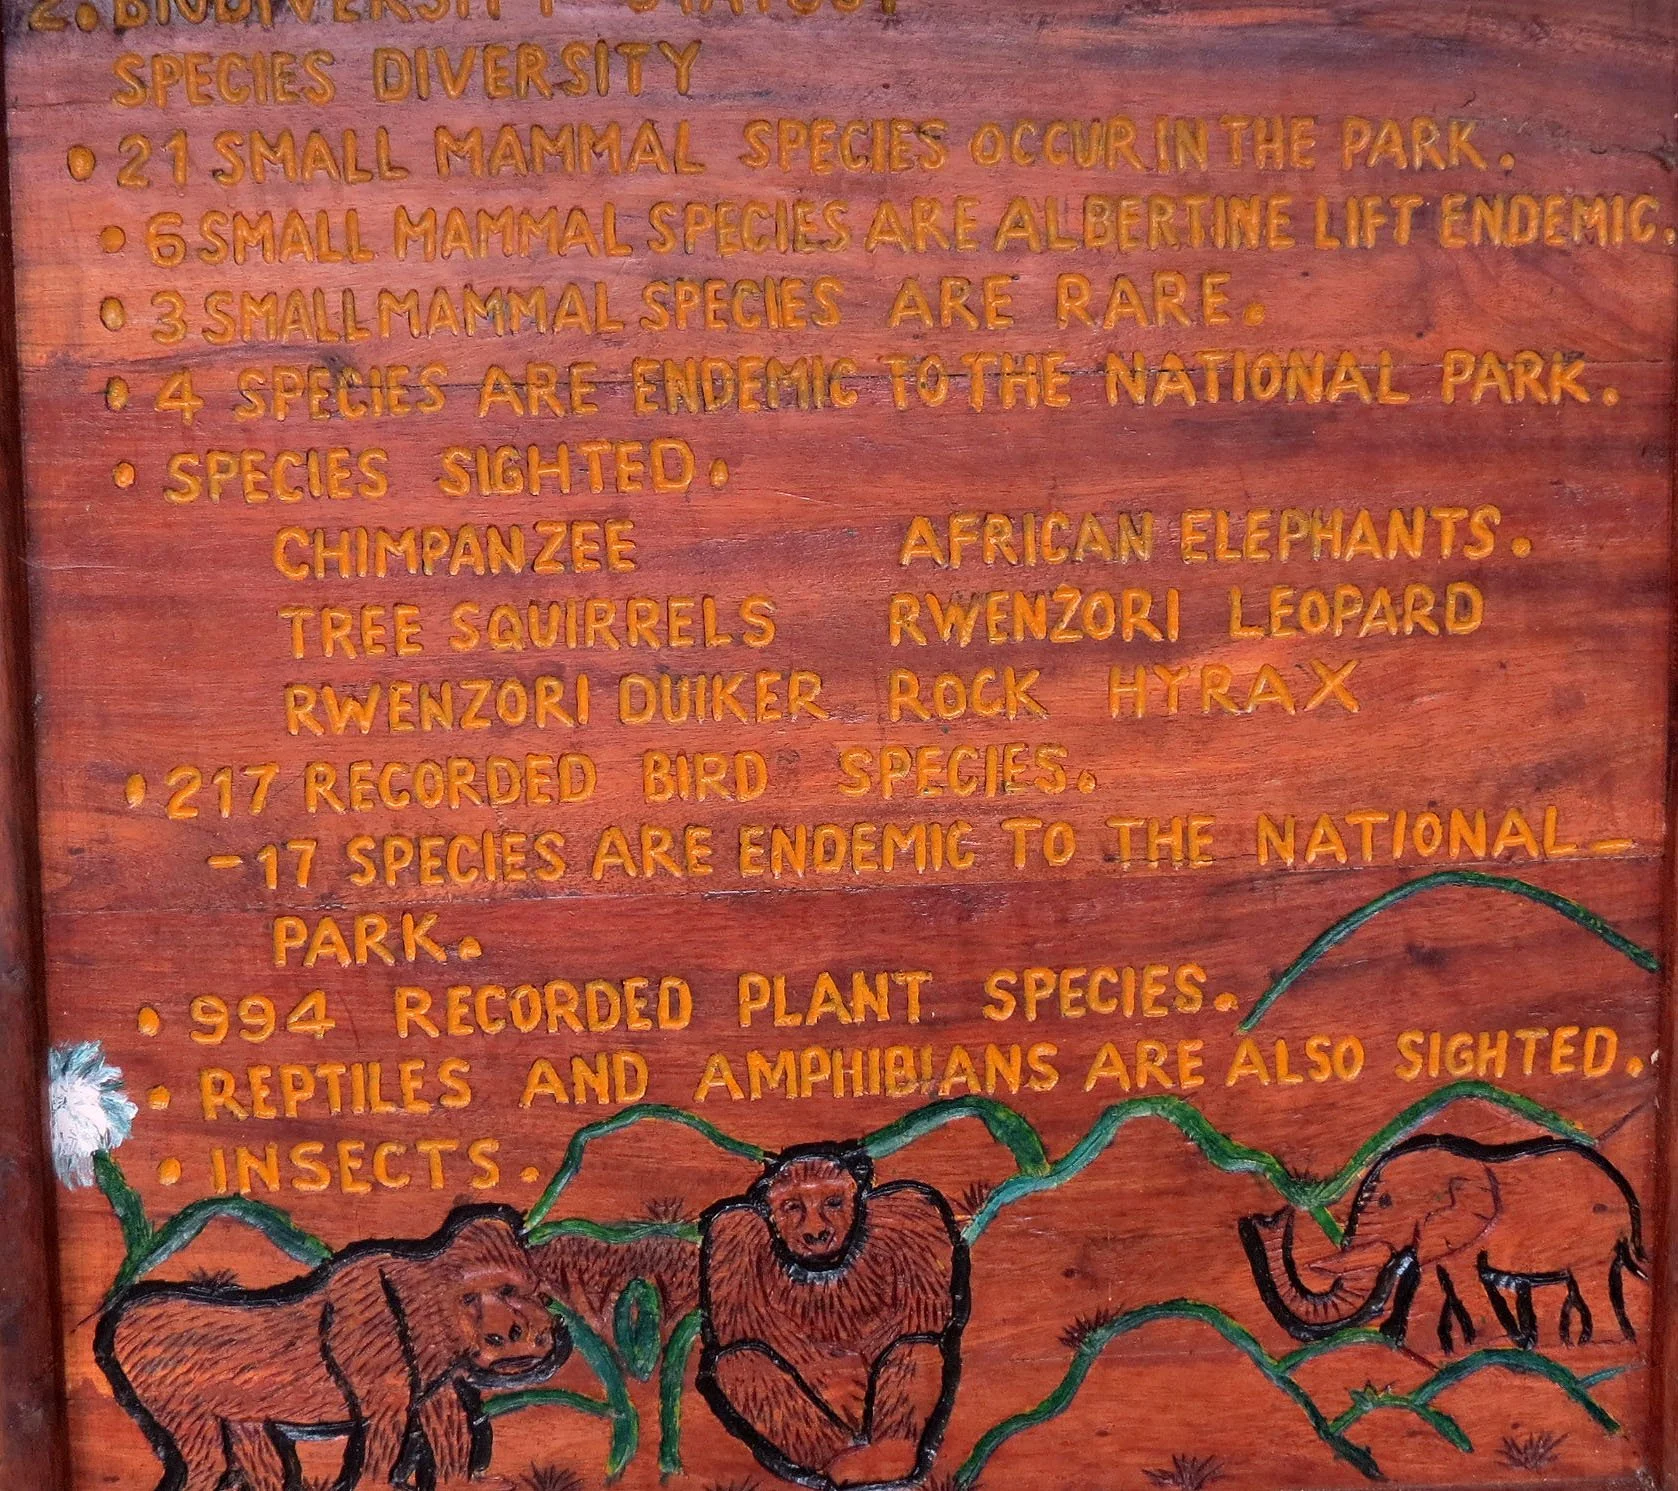 2. BIODIVERSITY STATUS?
SPECIES DIVERSITY
• 21 SMALL MAMMAL SPECIES OCCUR IN THE PARK.
• 6 SMALL MAMMAL SPECIES ARE ALBERTINE LIFT ENDEMIC.
• 3 SMALL MAMMAL SPECIES ARE RARE.
• 4 SPECIES ARE ENDEMIC TO THE NATIONAL PARK.
• SPECIES SIGHTED.
CHIMPANZEE AFRICAN ELEPHANTS.
TREE SQUIRRELS RWENZORI LEOPARD
RWENZORI DUIKER ROCK HYRAX
• 217 RECORDED BIRD SPECIES.
- 17 SPECIES ARE ENDEMIC TO THE NATIONAL_
PARK.
• 994 RECORDED PLANT SPECIES.
• REPTILES AND AMPHIBIANS ARE ALSO SIGHTED.
• INSECTS.